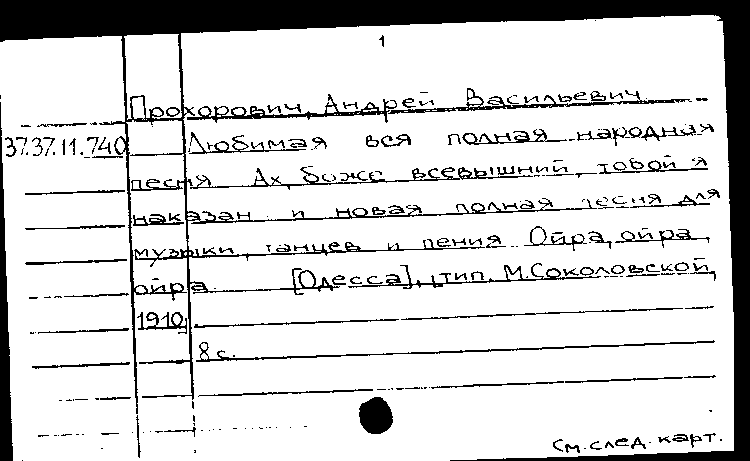 1
Прохорович, Андрей Васильевич
37.37.11.740 Любимая вся полная народная
песня Ах, боже всевышний, тобой я
наказан и новая полная песня для
музыки, танцев и пения Ойра, ойра,
ойра. [Одесса], тип. М. Соколовской,
1910.
8 с.
См. след. карт.